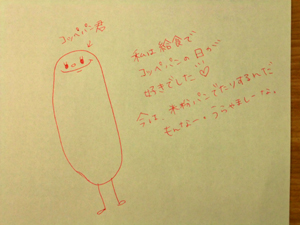 コッペパン君
私は給食で
コッペパンの日が
好きでした♡
今って、米粉パンでたりするんだ
もんなー。うらやましーな。